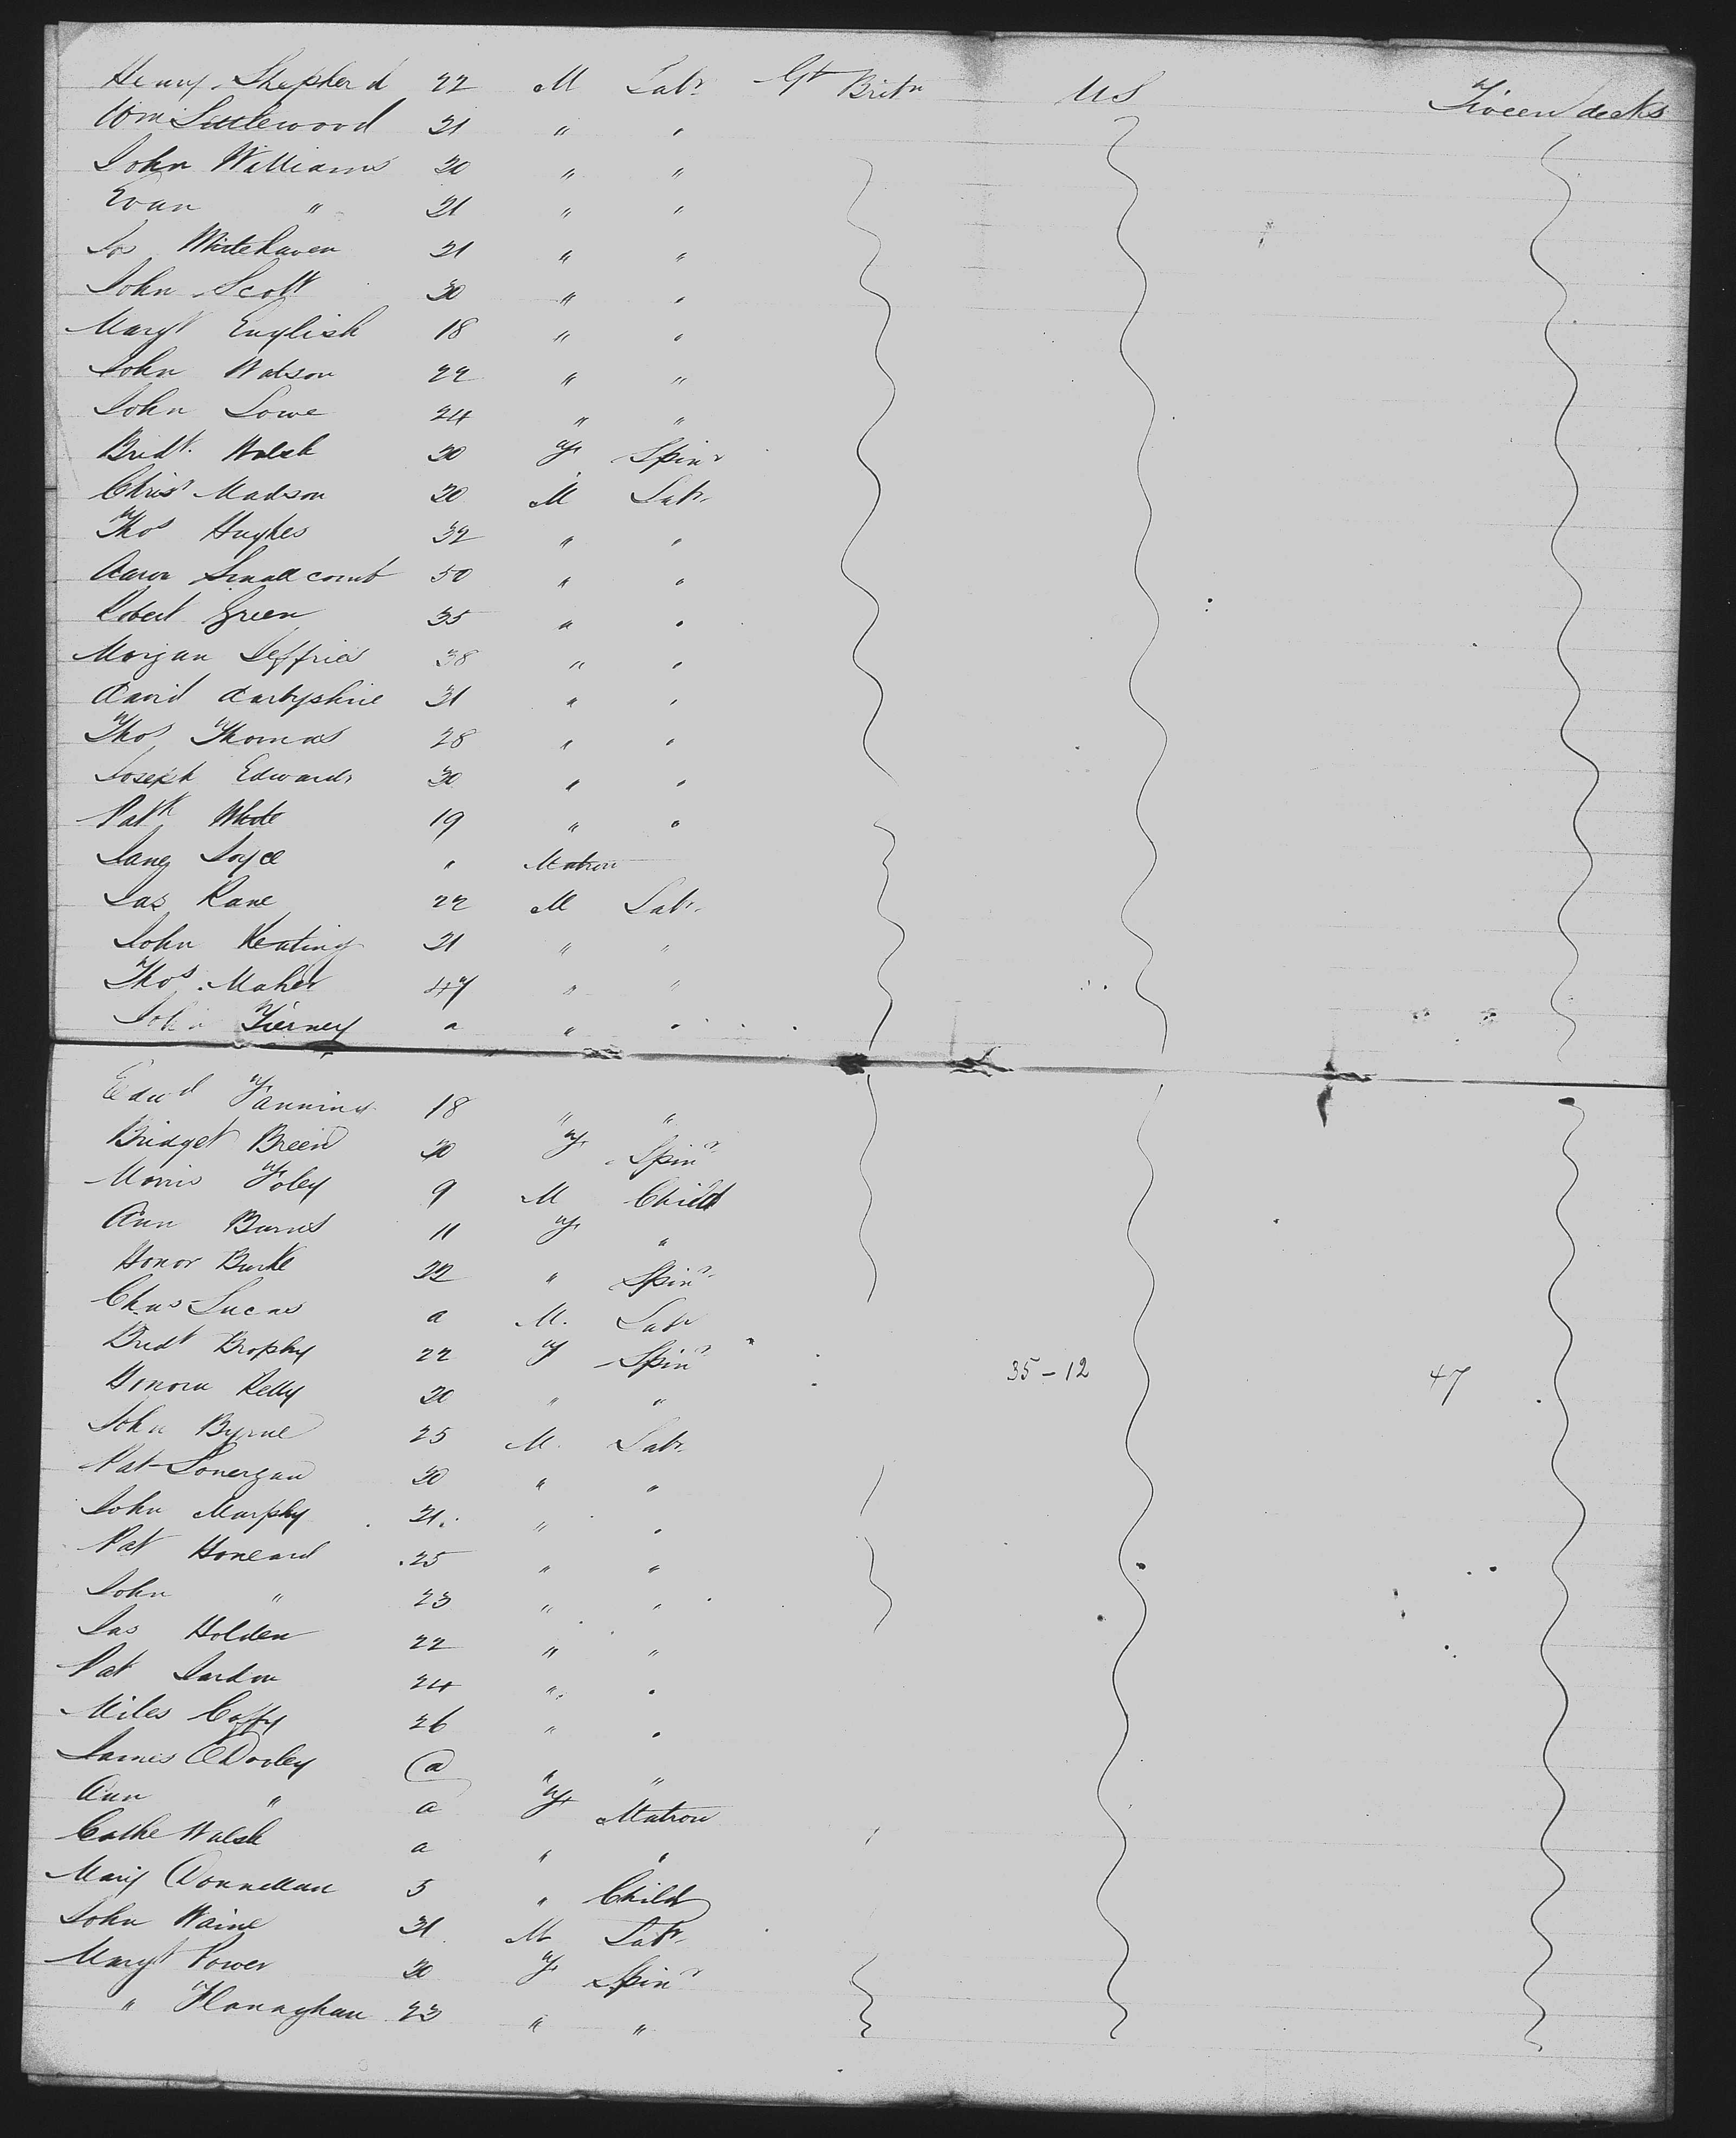 Henry Shepherd 22 M Labr Gt Britn US Tween decks
Wm Littlewood 21 " "
John Williams 20 " "
Evan " 21 " "
Jos Whitehaven 21 " "
John Scott 30 " "
Margt English 18 " "
John Watson 22 " "
John Lowe 24 " "
Bridt. Walsh 20 F Spinr
Christ Madson 20 M Labr
Thos Hughes 32 " "
Aaron Smallcomb 50 " "
Robert Green 35 " "
Morgan Jeffries 38 " "
David Darbyshire 31 " "
Thos Thomas 28 " "
Joseph Edwards 30 " "
Patk White 19 " "
Jane Joyce " Matron
Jas Kane 22 M Labr
John Keating 21 " "
Thos. Maher 47 " "
John Tierney a " "
Edwd Fanning 18 " "
Bridget Breen 20 F Spinr
Morris Foley 9 M Child
Ann Burns 11 F "
Honor Burke 22 " Spinr
Chas Lucas a M. Labr
Bridt Brophy 22 F Spinr 35-12 47
Honora Kelly 20 " "
John Byrne 25 M. Labr
Pat Lonergan 20 " "
John Murphy 21. " "
Pat 25 " "
John " 23 " "
Jas Holden 22 " "
Pat 24 " "
Miles Coffy 26 " "
James ODooley a " "
Ann " a F Matron
Cathe Walsh a " "
Mary Donnellan 5 " Child
John Waine 31 M Labr
Margt Power 20 F Spinr
" Flanaghan 23 " "